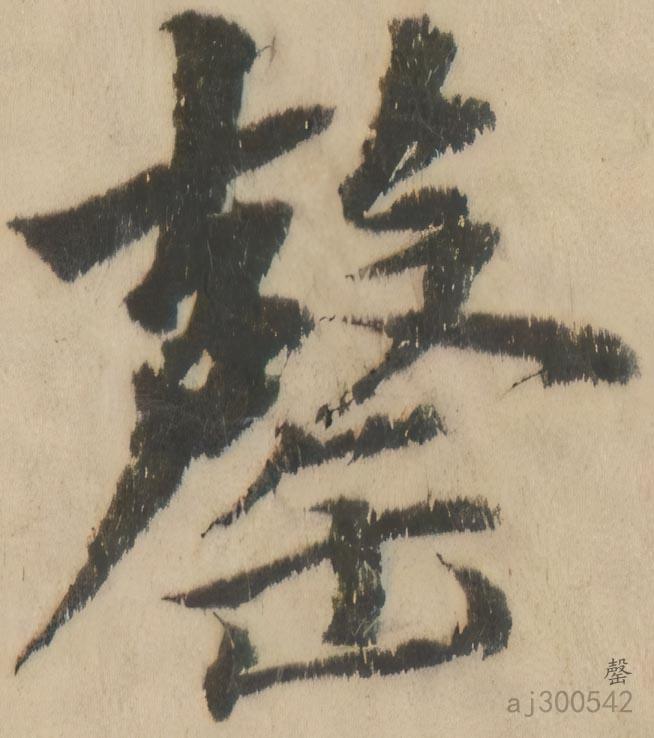 罄
罄
aj300542